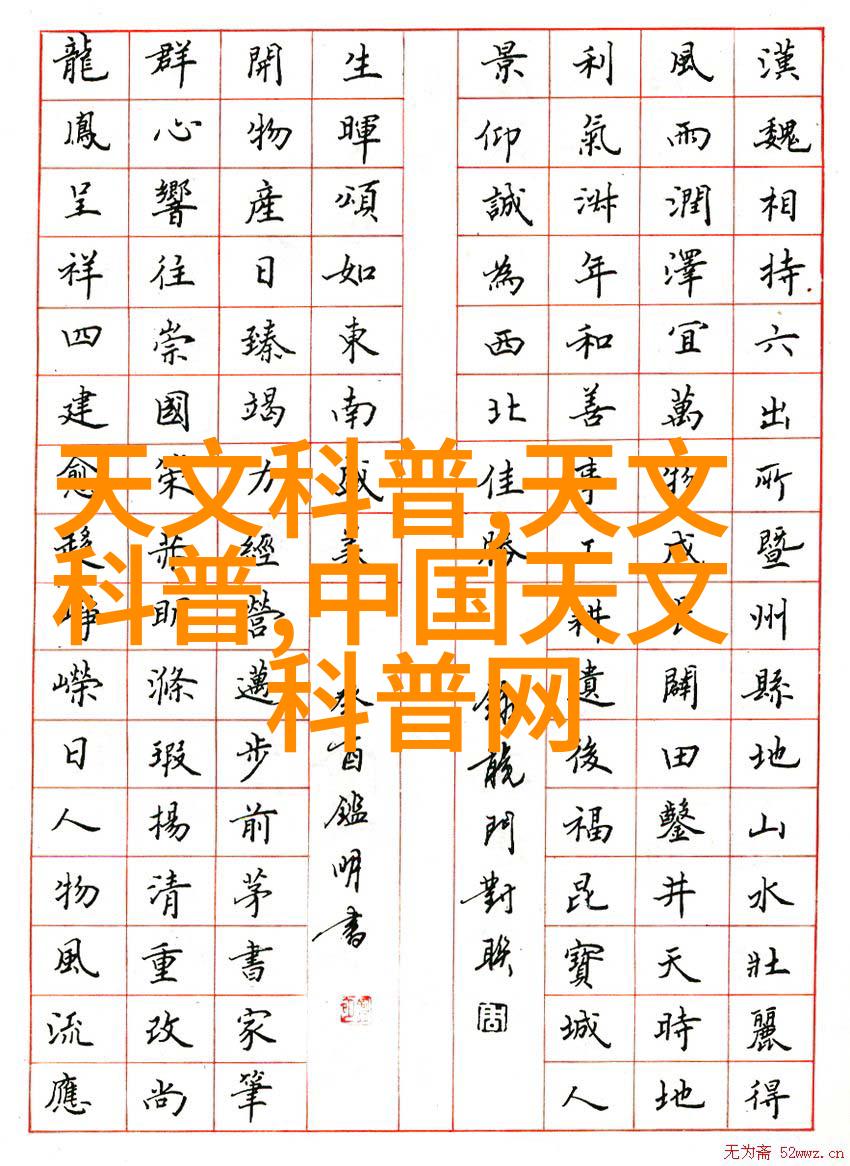 漢魏相持六出所暨州縣地山水壯麗得
風雨潤澤宜萬物成闢田鑿井天時地
利氣淑年和善事工耕遺後福昆寶城人
景仰誠為西北佳勝
龍門對聯
生暉頌如東南盛美
癸酉鑑明書
開物產日臻竭力經營邁步前茅書家筆
群心響往崇國榮明滌瑕揚清重改尚
龍鳳呈祥四建愈崢嶸日人物風流應
天文科普,天文
科普,中国天文
科普网
无为斋 52wwz.cn